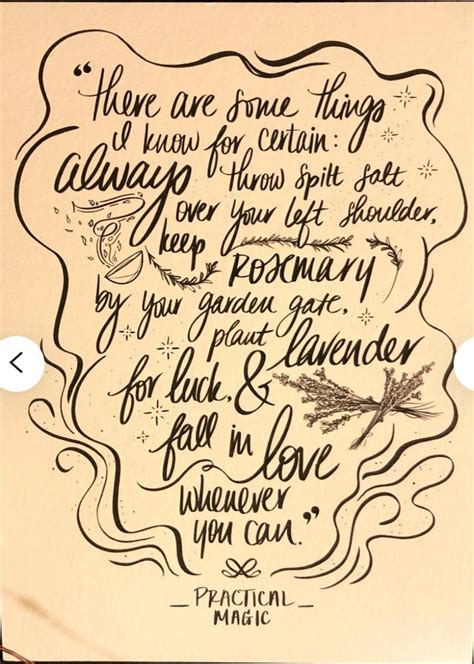 “there are some things
I know for certain:
always throw spilt salt
over your left shoulder,
keep rosemary
by your garden gate,
plant lavender
for luck, &
fall in love
whenever
you can.”
_ PRACTICAL _
MAGIC